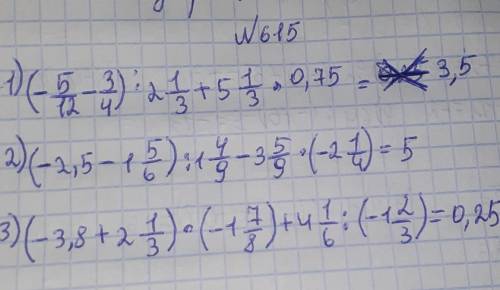 №615
1) (-5/12 - 3/4) : 2 1/3 + 5 1/3 • 0,75 = 3,5
2) (-2,5 - 1 5/6) : 1 4/9 - 3 5/9 • (-2 1/4) = 5
3) (-3,8 + 2 1/3) • (-1 7/8) + 4 1/6 : (-1 2/3) = 0,25